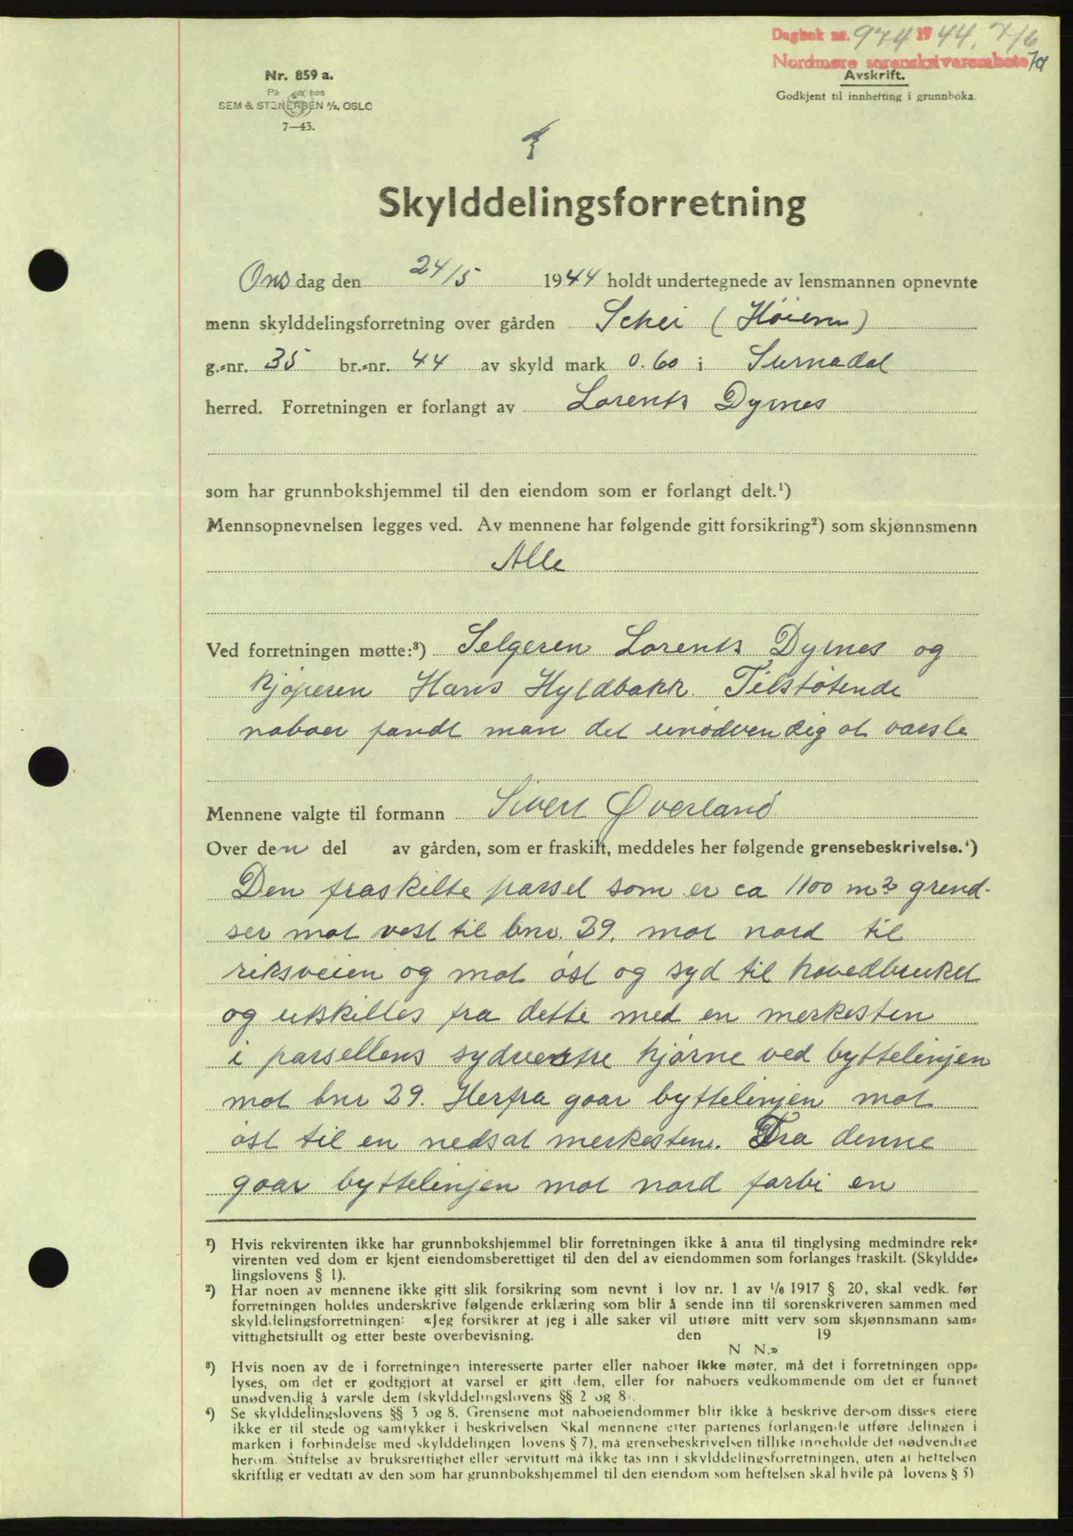 Dagbok nr. 974 1944, 7/6
Nordmøre sorenskriverembete
Nr. 859 a.
SEM & STENERSEN A/S, OSLO
7—43.
Avskrift.
Godkjent til innhefting i grunnboka.
Skylddelingsforretning
Onsdag den 24/5 1944 holdt undertegnede av lensmannen opnevnte
menn skylddelingsforretning over gården Schei (Høiem)
g.-nr. 35 br.-nr. 44 av skyld mark 0.60 i Surnadal
herred. Forretningen er forlangt av Lorents Dyrnes
som har grunnbokshjemmel til den eiendom som er forlangt delt.¹)
Mennsopnevnelsen legges ved. Av mennene har følgende gitt forsikring²) som skjønnsmenn
Alle
Ved forretningen møtte:³) Selgeren Lorents Dyrnes og
kjøperen Hans Hyldbakk. Tilstøtende
naboer fandt man det unødvendig at varsle
Mennene valgte til formann Sivert Øverland
Over den del av gården, som er fraskilt, meddeles her følgende grensebeskrivelse.⁴)
Den fraskilte parsel som er ca 1100 m² grend-
ser mot vest til bnr. 39. mot nord til
riksveien og mot øst og syd til hovedbruket
og utskilles fra dette med en merkesten
i parsellens sydvestre hjørne ved byttelinjen
mot bnr 39. Herfra gaar byttelinjen mot
øst til en nedsat merkesten. Fra denne
gaar byttelinjen mot nord forbi en
¹) Hvis rekvirenten ikke har grunnbokshjemmel blir forretningen ikke å anta til tinglysing medmindre rek-
virenten ved dom er kjent eiendomsberettiget til den del av eiendommen som forlanges fraskilt. (Skyldde-
lingslovens § 1).
²) Har noen av mennene ikke gitt slik forsikring som nevnt i lov nr. 1 av 1/6 1917 § 20, skal vedk. før
forretningen holdes underskrive følgende erklæring som blir å sende inn til sorenskriveren sammen med
skylddelingsforretningen: «Jeg forsikrer at jeg i alle saker vil utføre mitt verv som skjønnsmann sam-
vittighetsfullt og etter beste overbevisning. den 19
N N.»
³) Hvis noen av de i forretningen interesserte parter eller naboer ikke møter, må det i forretningen opp-
lyses, om det er godtgjort at varsel er gitt dem, eller for naboers vedkommende om det er funnet
unødvendig å varsle dem (skylddelingslovens §§ 2 og 8).
⁴) Se skylddelingslovens §§ 3 og 8. Grensene mot naboeiendommer blir ikke å beskrive dersom disses eiere
ikke er til stede og samtykker i beskrivelsen Skal mennene etter partenes forlangende utføre delingen i
marken i forbindelse med skylddelingen lovens § 7), må grensebeskrivelsen tillike inneholde det nødvendige
herom. Stiftelse av bruksrettighet eller servitutt må ikke tas inn i skylddelingsforretningen, uten at heftelsen
skriftlig er vedtatt av den som har grunnbokshjemmel til den eiendom som heftelsen skal hvile på lovens § 5)